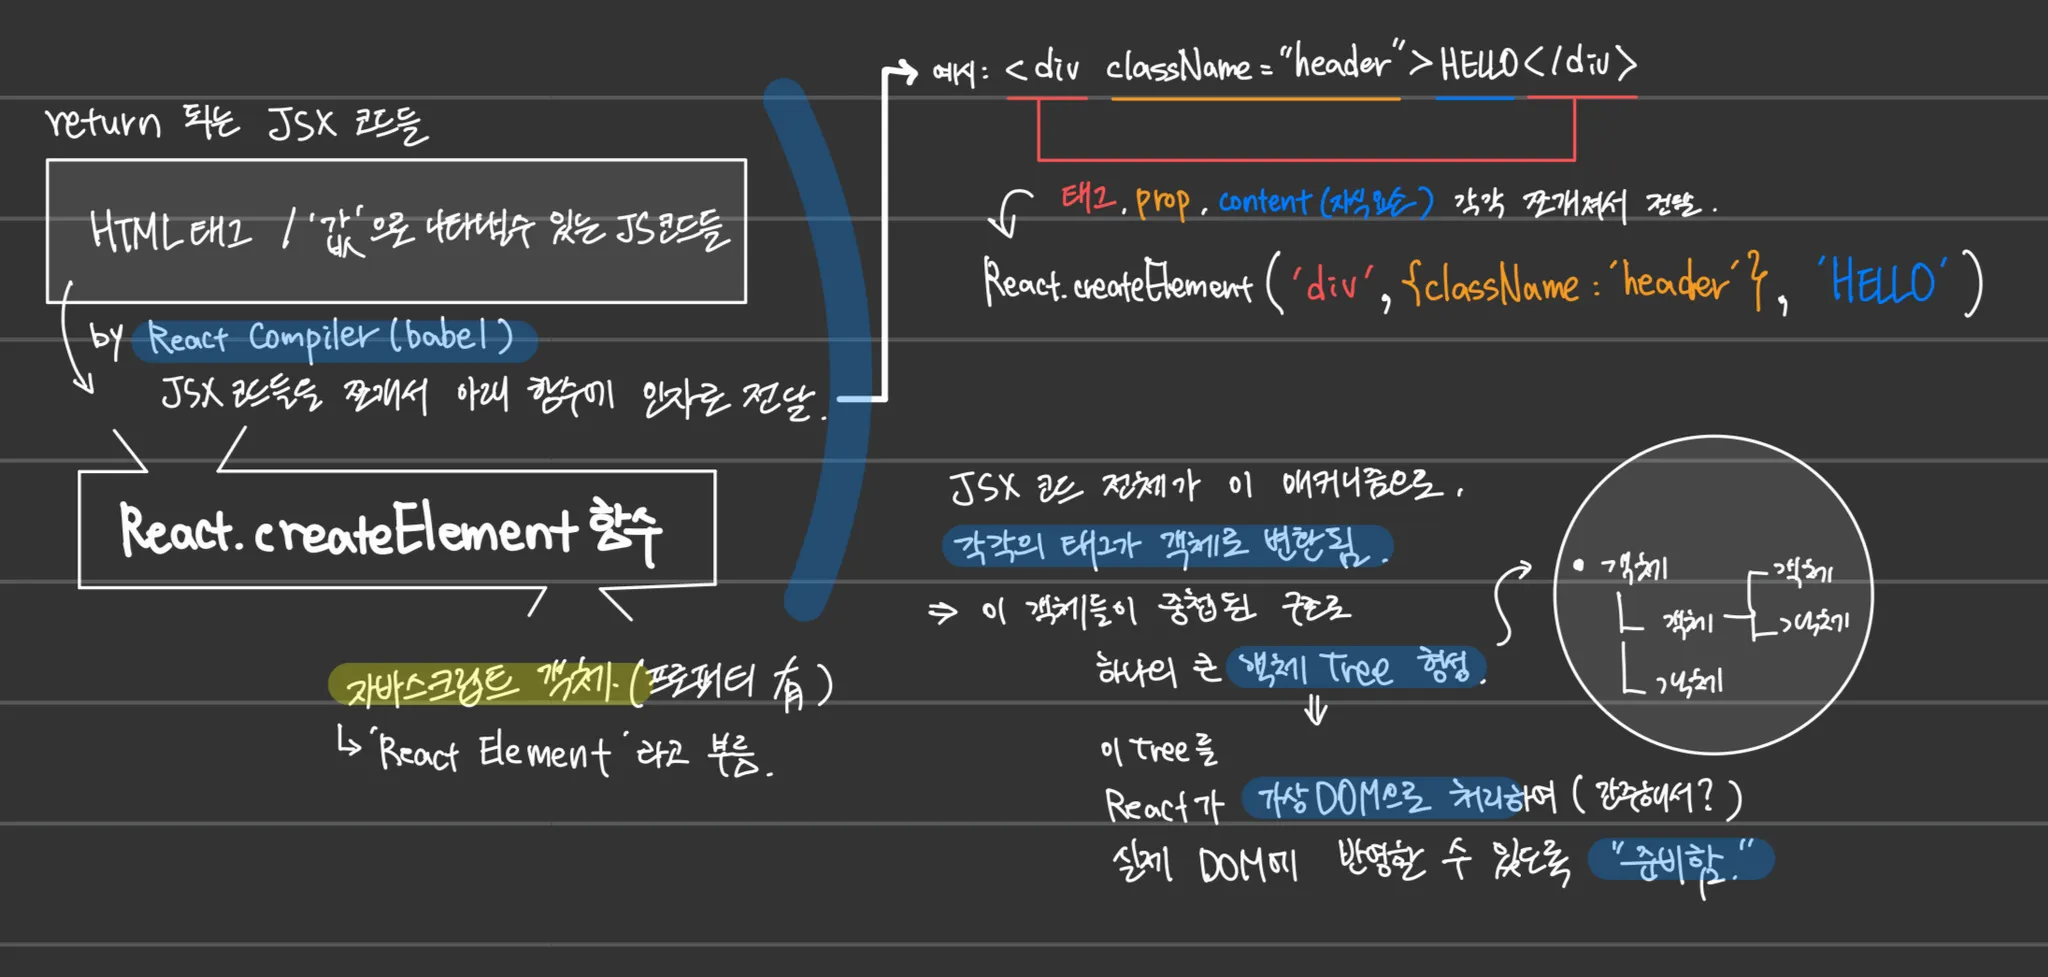 return 되는 JSX 코드들
HTML 태그 / '값'으로 나타낼수 있는 JS코드들
by React Compiler (babel)
JSX 코드들을 쪼개서 아래 함수에 인자로 전달.
React.createElement 함수
자바스크립트 객체. (프로퍼티 有)
↳ 'React Element' 라고 부름.
예시: <div className="header">HELLO</div>
태그, prop, content (자식요소) 각각 쪼개져서 전달.
React.createElement ('div', {className: 'header'}, 'HELLO')
JSX 코드 전체가 이 매커니즘으로.
각각의 태그가 객체로 변환됨.
⇒ 이 객체들이 중첩된 구조로
하나의 큰 객체 Tree 형성.
⇓
이 tree를
React가 가상DOM으로 처리하여 (간주해서?)
실제 DOM에 반영할 수 있도록 "준비함."
• 객체
객체
객체
객체
객체